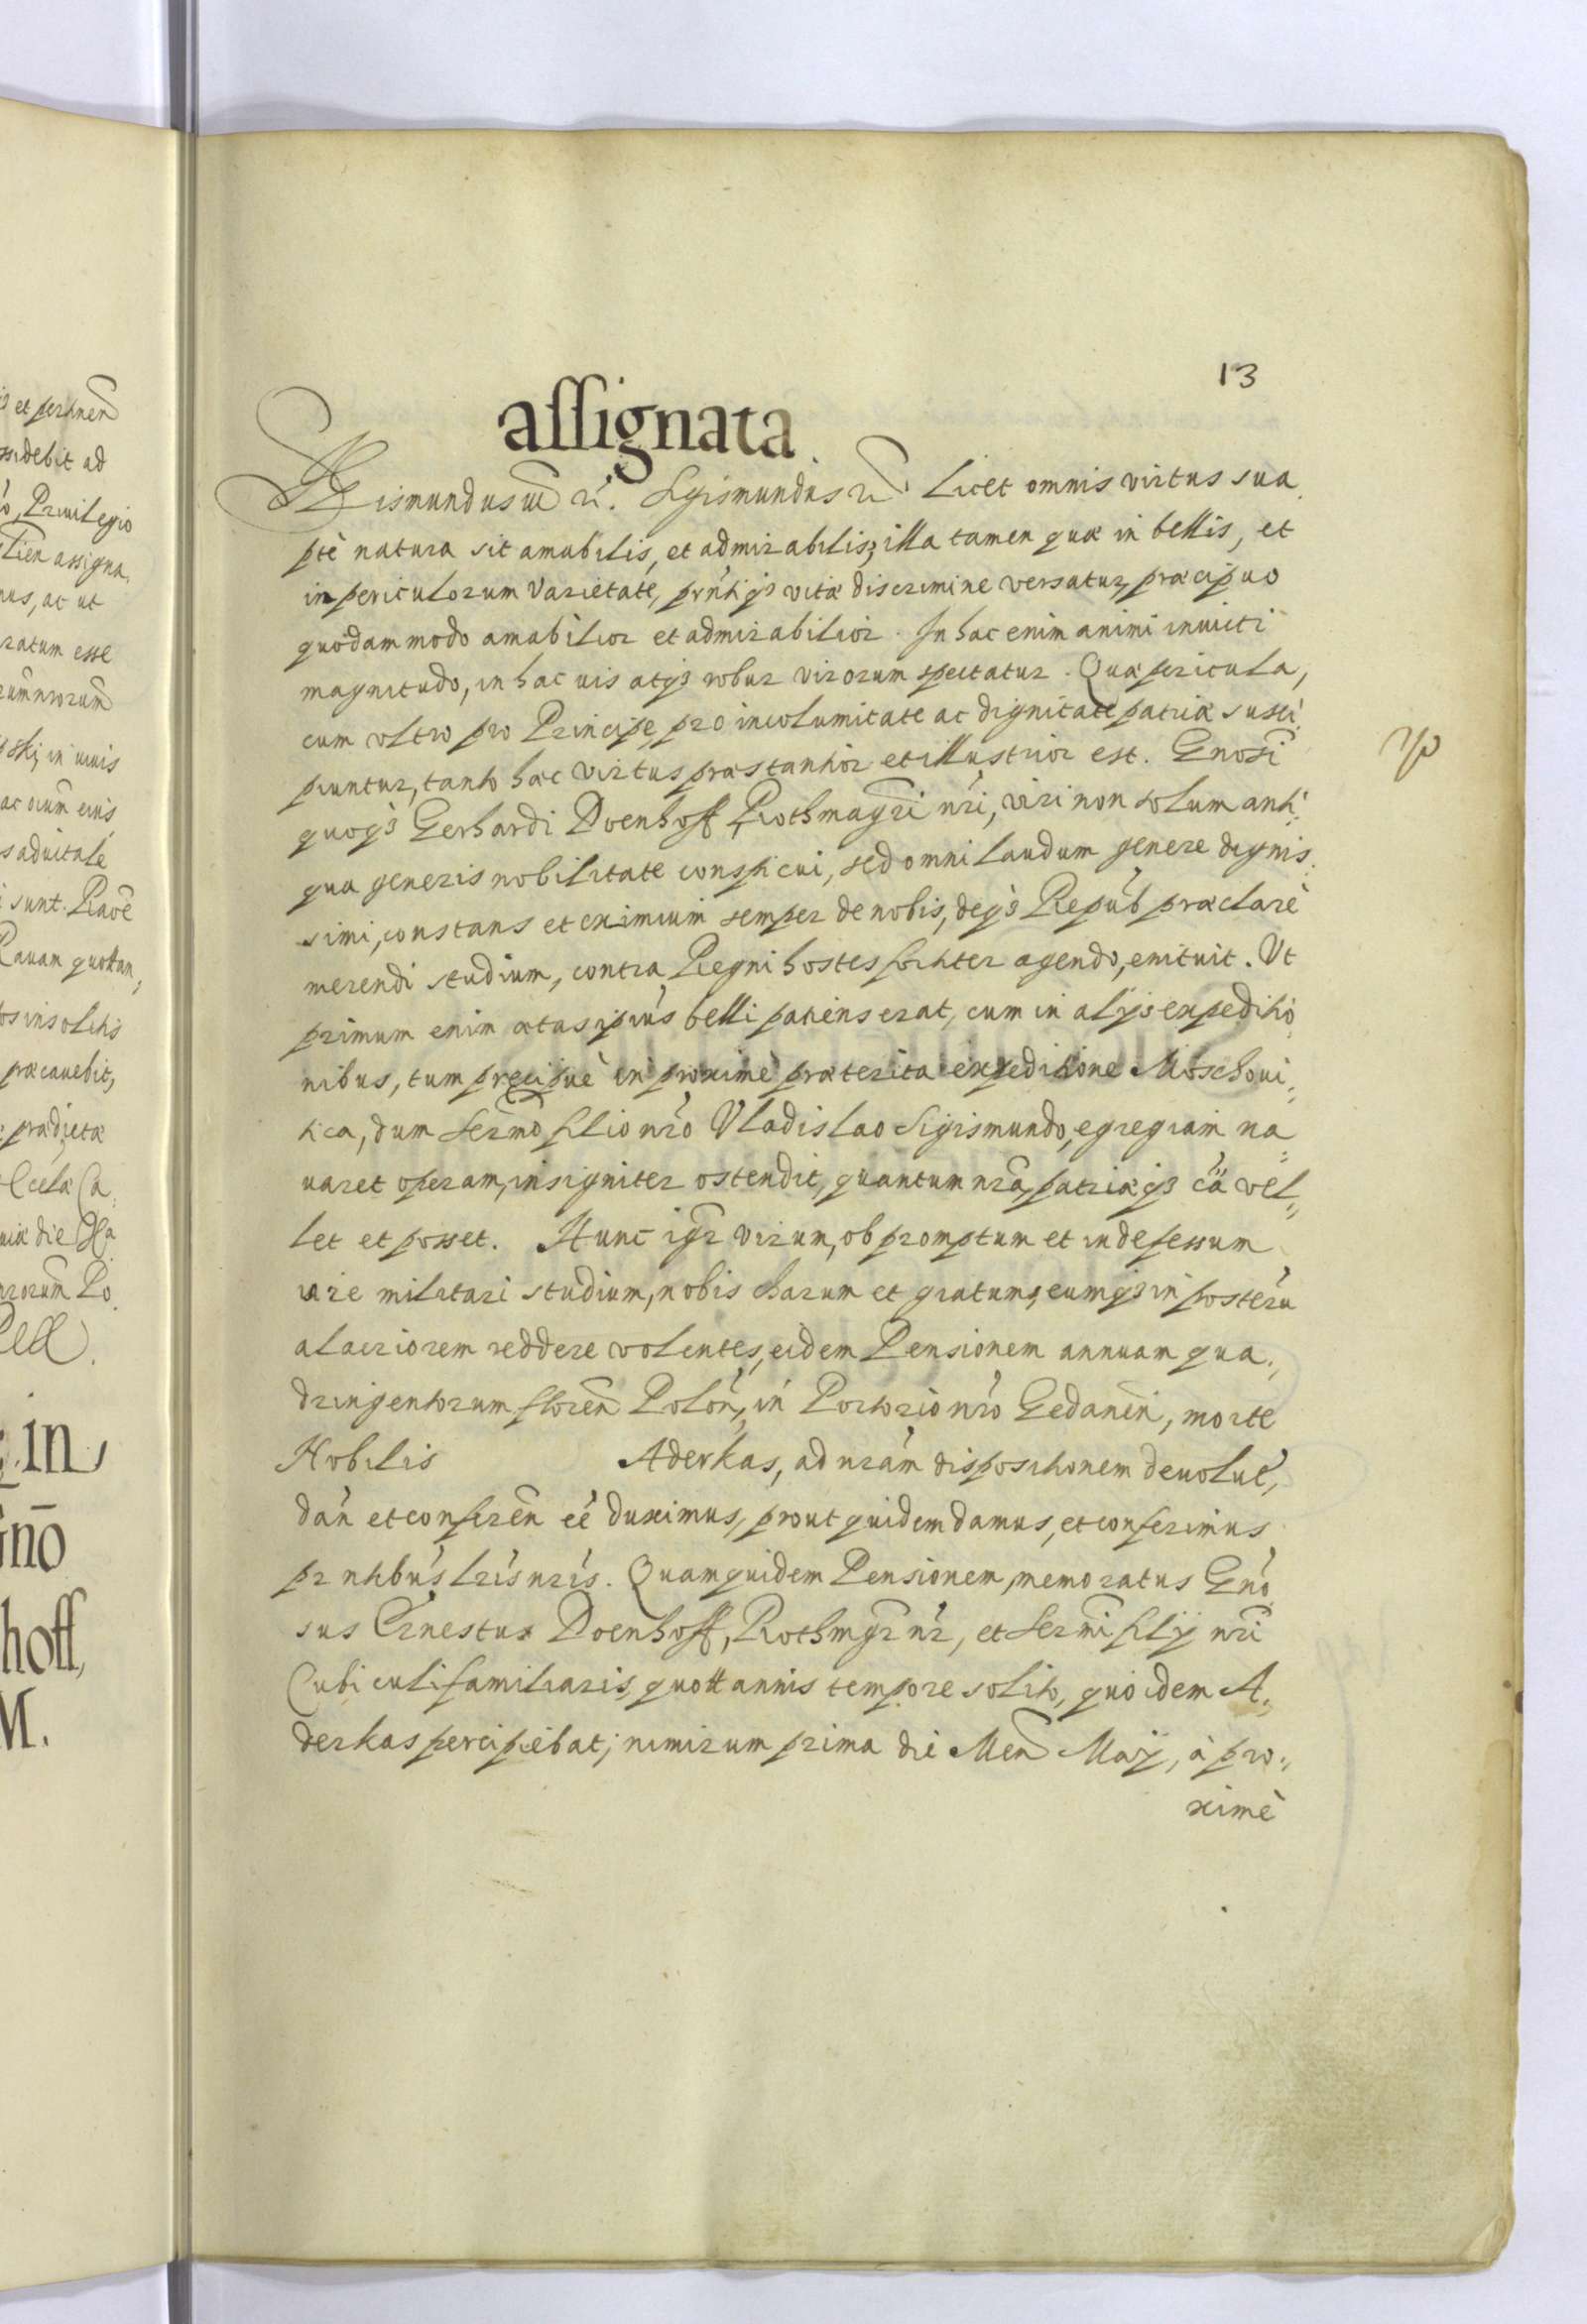 et pertinen
ssidebit ad
Priuilegio
assigna
ac ut
ratum esse
in uiuis
ac cum eius
sunt. Rauae
Rauam quottan,
insolitis
praecauebit,
praedicta
die
Pell.
in
gno
hoff,
M.
13
assignata
Sigismundus 3us etc. Sigismundus etc. Licet omnis virtus sua
ptè natura sit amabilis, et admirabilis; illa tamen quae in bellis, et
in periculorum varietate, prnti q3 vitae discrimine versatur, praecipuo
quodammodo amabilior et admirabilior. In hac enim animi inuicti
magnitudo, in hac uis atq3 robur virorum spectatur. Quae pericula,
cum vltro pro Principe, pro incolumitate ac dignitate patriae susci
piuntur, tanto haec virtus praestantior et illustrior est. Gnosi
quoq3 Gerhardi Doenhoff Rothmagri nri, viri non solum anti
qua generis nobilitate conspicui, sed omni laudum genere dignis
simi, constans et eximium semper de nobis, deq3 Repub praeclarè
merendi studium, contra Regni hostes fortiter agendo, enituit. Vt
primum enim aetas ipius belli patiens erat, cum in alijs expeditio
nibus, tum precipuè in proximè praeterita expeditione Moschoui
tica, dum Sermo filio nro Vladislao Sigismundo, egregiam na
uaret operam, insigniter ostendit, quantum nra, patriaeq3 cã vel
let et posset. Hunc igr virum, ob promptum et indefessum
in re militari studium, nobis charum et gratum, eumq3 in posteru
alacriorem reddere volentes, eidem Pensionem annuam qua
dringentorum floren Polon, in Portorio nro Gedanen, morte
Nobilis Aderkas, ad nram dispositionem deuolut,
dan et conferen eè duximus, prout quidem damus, et conferimus
prntibus lris nris. Quam quidem Pensionem, memoratus Gno
sus Ernestus Doenhoff, Rothmgr nr, et Sermi filij nri
Cubiculi familiaris, quottannis tempore solito, quo idem A
derkas percipiebat; nimirum prima die Men Maij, à pro
ximè